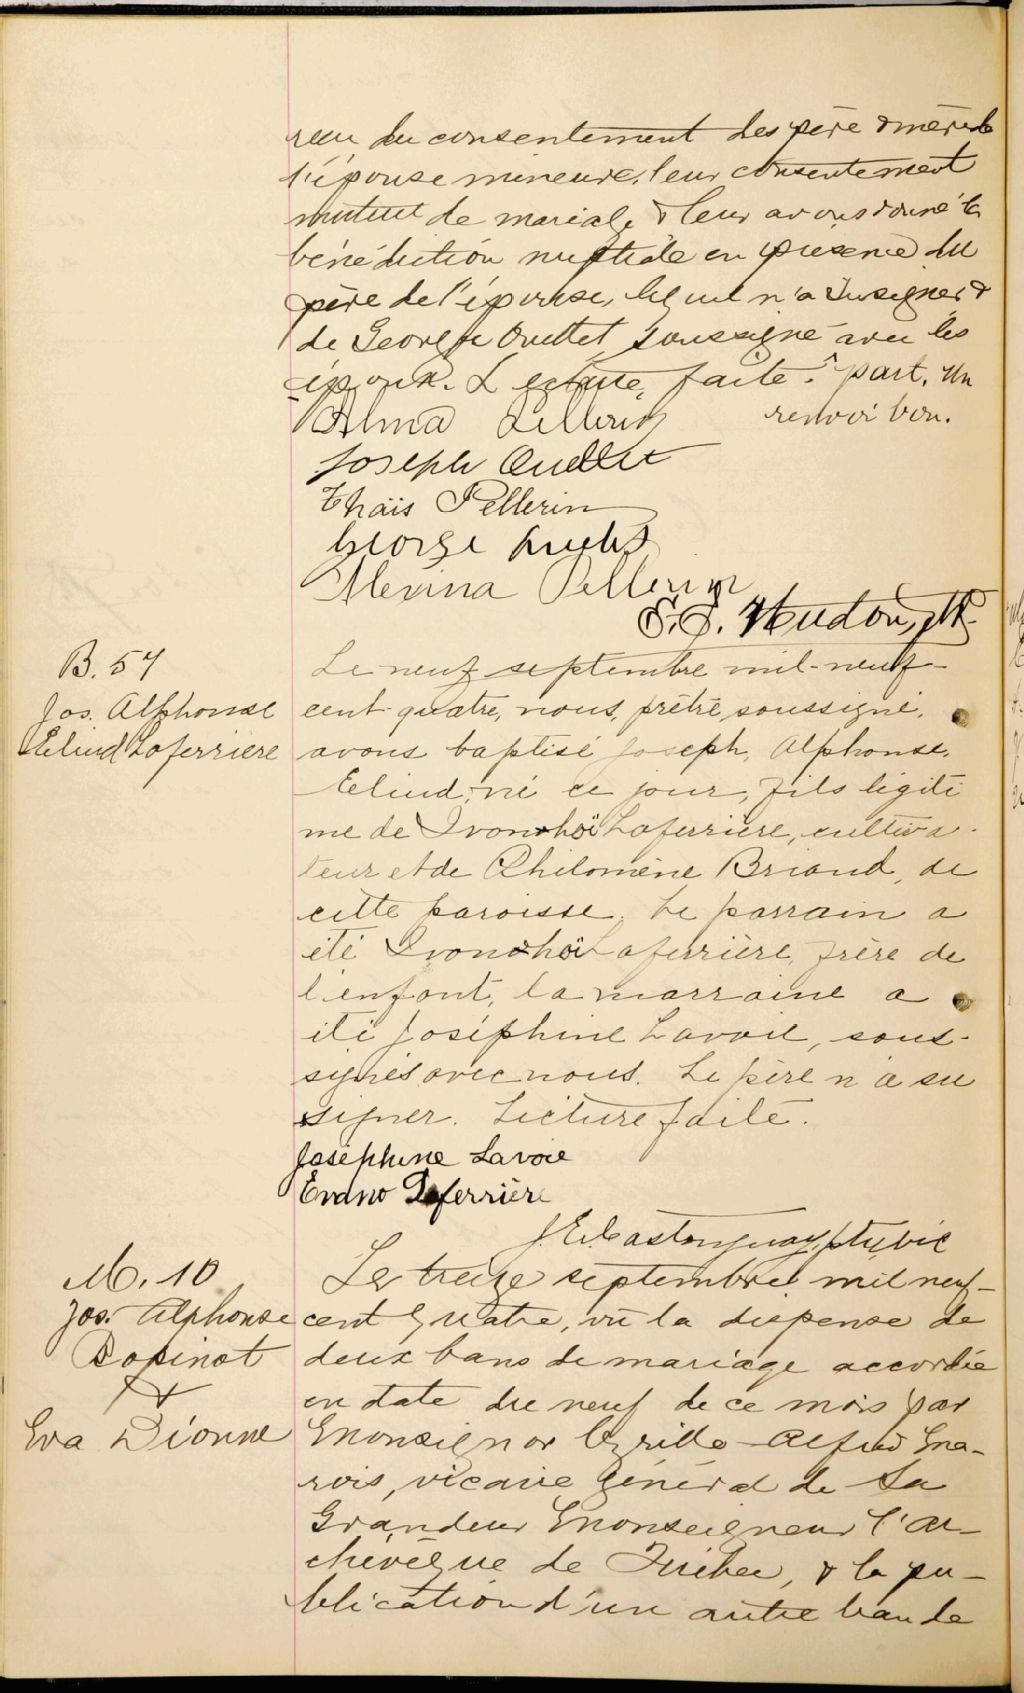 reçu du consentement des père & mère de
l'épouse mineure, leur consentement
mutuel de mariage & leur avons donné la
bénédiction nuptiale en présence du
père de l'épouse, lequel n'a su signer &
de George Ouellet soussigné avec les
époux. Lecture faite. part. un
renvoi bon.
Alma Pellerin
Joseph Ouellet
Thaïs Pellerin
George
Alexina Pellerin
Hudon, ptr.
B. 57
Jos. Alphonse
Eliud Laferriere
Le neuf septembre mil-neuf-
cent-quatre, nous, prêtre soussigné,
avons baptisé Joseph, Alphonse,
Eliud, né ce jour, fils légiti
me de Ivonohoï Laferriere, cultiva-
teur et de Philomène Briand, de
cette paroisse. Le parrain a
été Ivonohoï Laferrière, frère de
l'enfant, la marraine a
été Joséphine Lavoie, sous-
signés avec nous. Le père n'a su
signer. Lecture faite.
Joséphine Lavoie
Evano Laferrière
J. E. Castonguay, ptre vic
M. 10
Jos. Alphonse
Dopinot
&
Eva Dionne
Le treize septembre mil neuf-
cent quatre, vu la dispense de
deux bans de mariage accordée
en date du neuf de ce mois par
Monsignor Cyrille Alfred Ma-
rois, vicaire général de Sa
Grandeur Monseigneur l'ar-
chevêque de Québec, & la pu-
blication d'un autre ban de